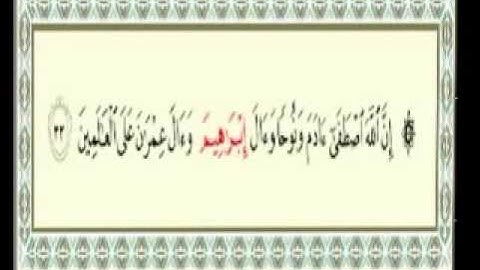 ۞ إِنَّ ٱللَّهَ ٱصۡطَفَىٰٓ ءَادَمَ وَنُوحٗا وَءَالَ إِبۡرَٰهِيمَ وَءَالَ عِمۡرَٰنَ عَلَى ٱلۡعَٰلَمِينَ ٣٣